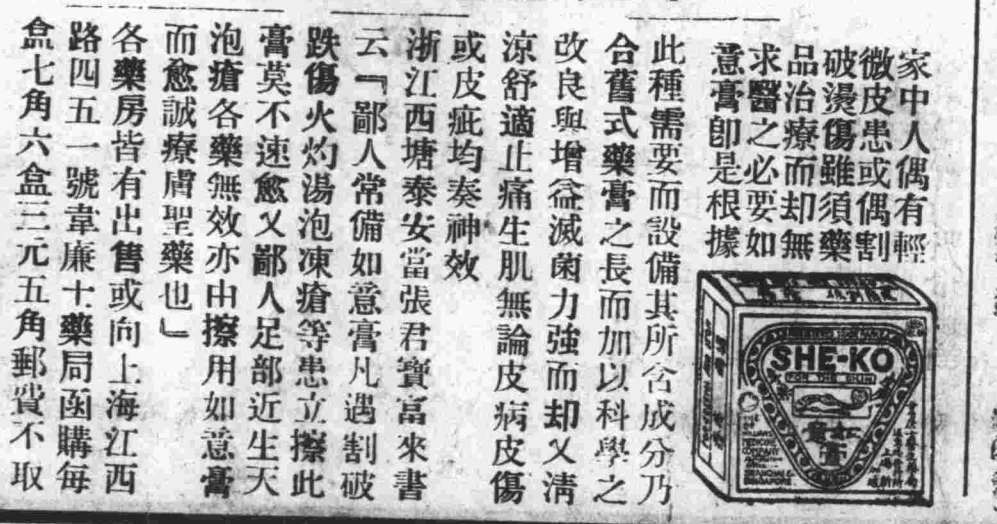 家中人偶有輕
微皮患或偶割
破燙傷雖須藥
品治療而却無
求醫之必要如
意膏卽是根據
此種需要而設備其所含成分乃
合舊式藥膏之長而加以科學之
改良與增益滅菌力強而却又淸
涼舒適止痛生肌無論皮病皮傷
或皮疵均奏神效
浙江西塘泰安當張君寶富來書
云『鄙人常備如意膏凡遇割破
跌傷火灼湯泡凍瘡等患立擦此
膏莫不速愈又鄙人足部近生天
泡瘡各藥無效亦由擦用如意膏
而愈誠療膚聖藥也』
各藥房皆有出售或向上海江西
路四五一號韋廉士藥局函購每
盒七角六盒三元五角郵費不取
SHE-KO
FOR THE SKIN
如意膏